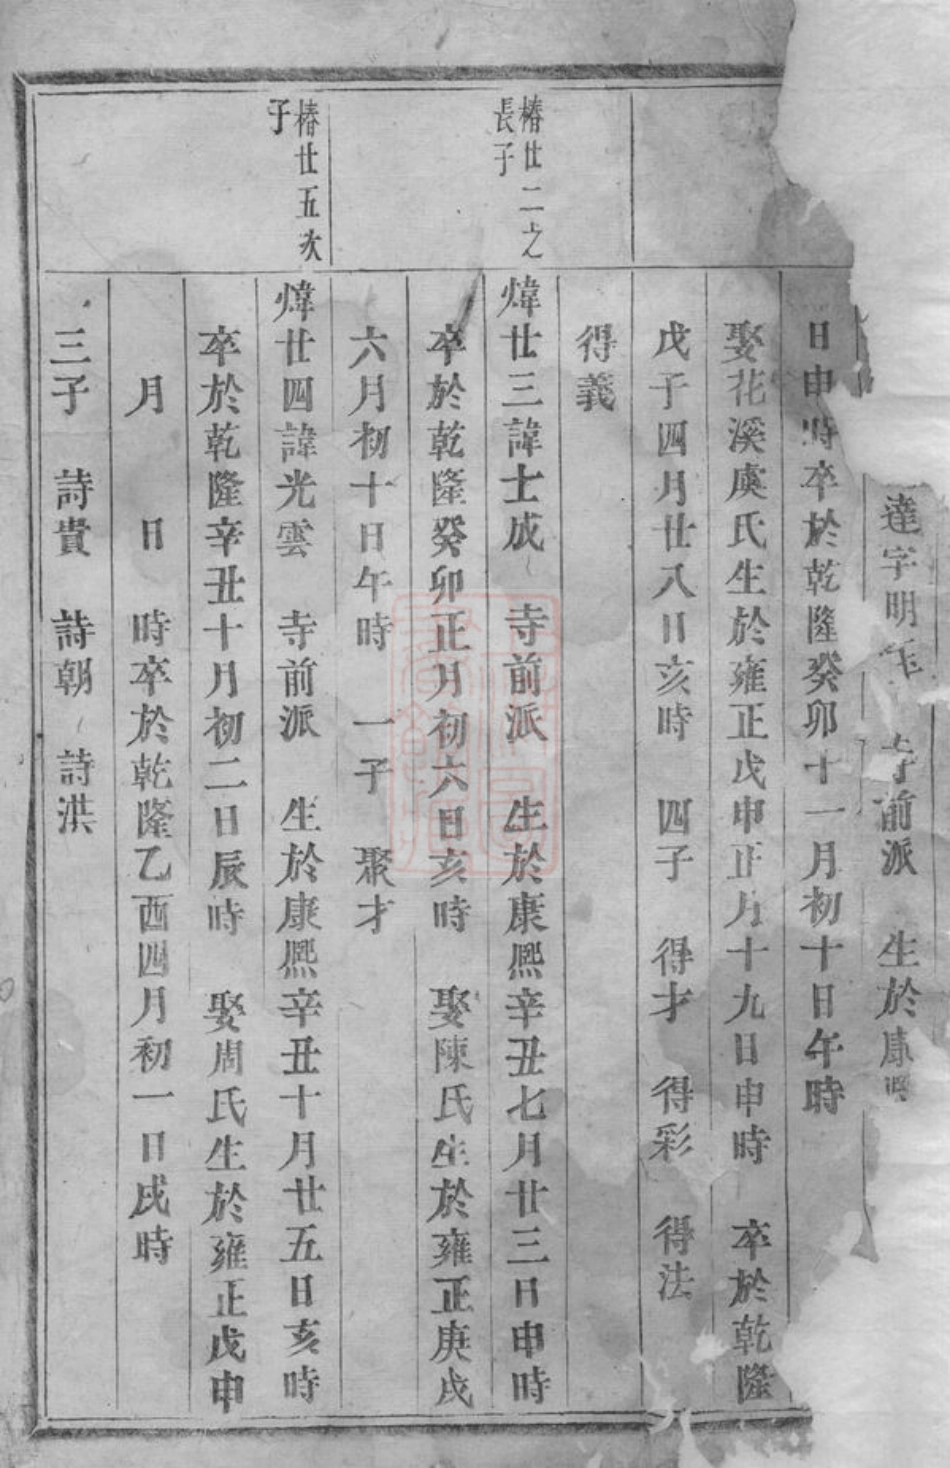 達字明 寺前派 生於康熙
日申時卒於乾隆癸卯十一月初十日午時
娶花溪虞氏生於雍正戊申正月十九日申時 卒於乾隆
戊子四月廿八日亥時 四子 得才 得彩 得法
得義
椿廿二之
長子
煒廿三諱士成 寺前派 生於康熙辛丑七月廿三日申時
卒於乾隆癸卯正月初六日亥時 娶陳氏生於雍正庚戌
六月初十日午時 一子 聚才
椿廿五次
子
煒廿四諱光雲 寺前派 生於康熙辛丑十月廿五日亥時
卒於乾隆辛丑十月初二日辰時 娶周氏生於雍正戊申
月 日 時卒於乾隆乙酉四月初一日戌時
三子 詩貴 詩朝 詩洪